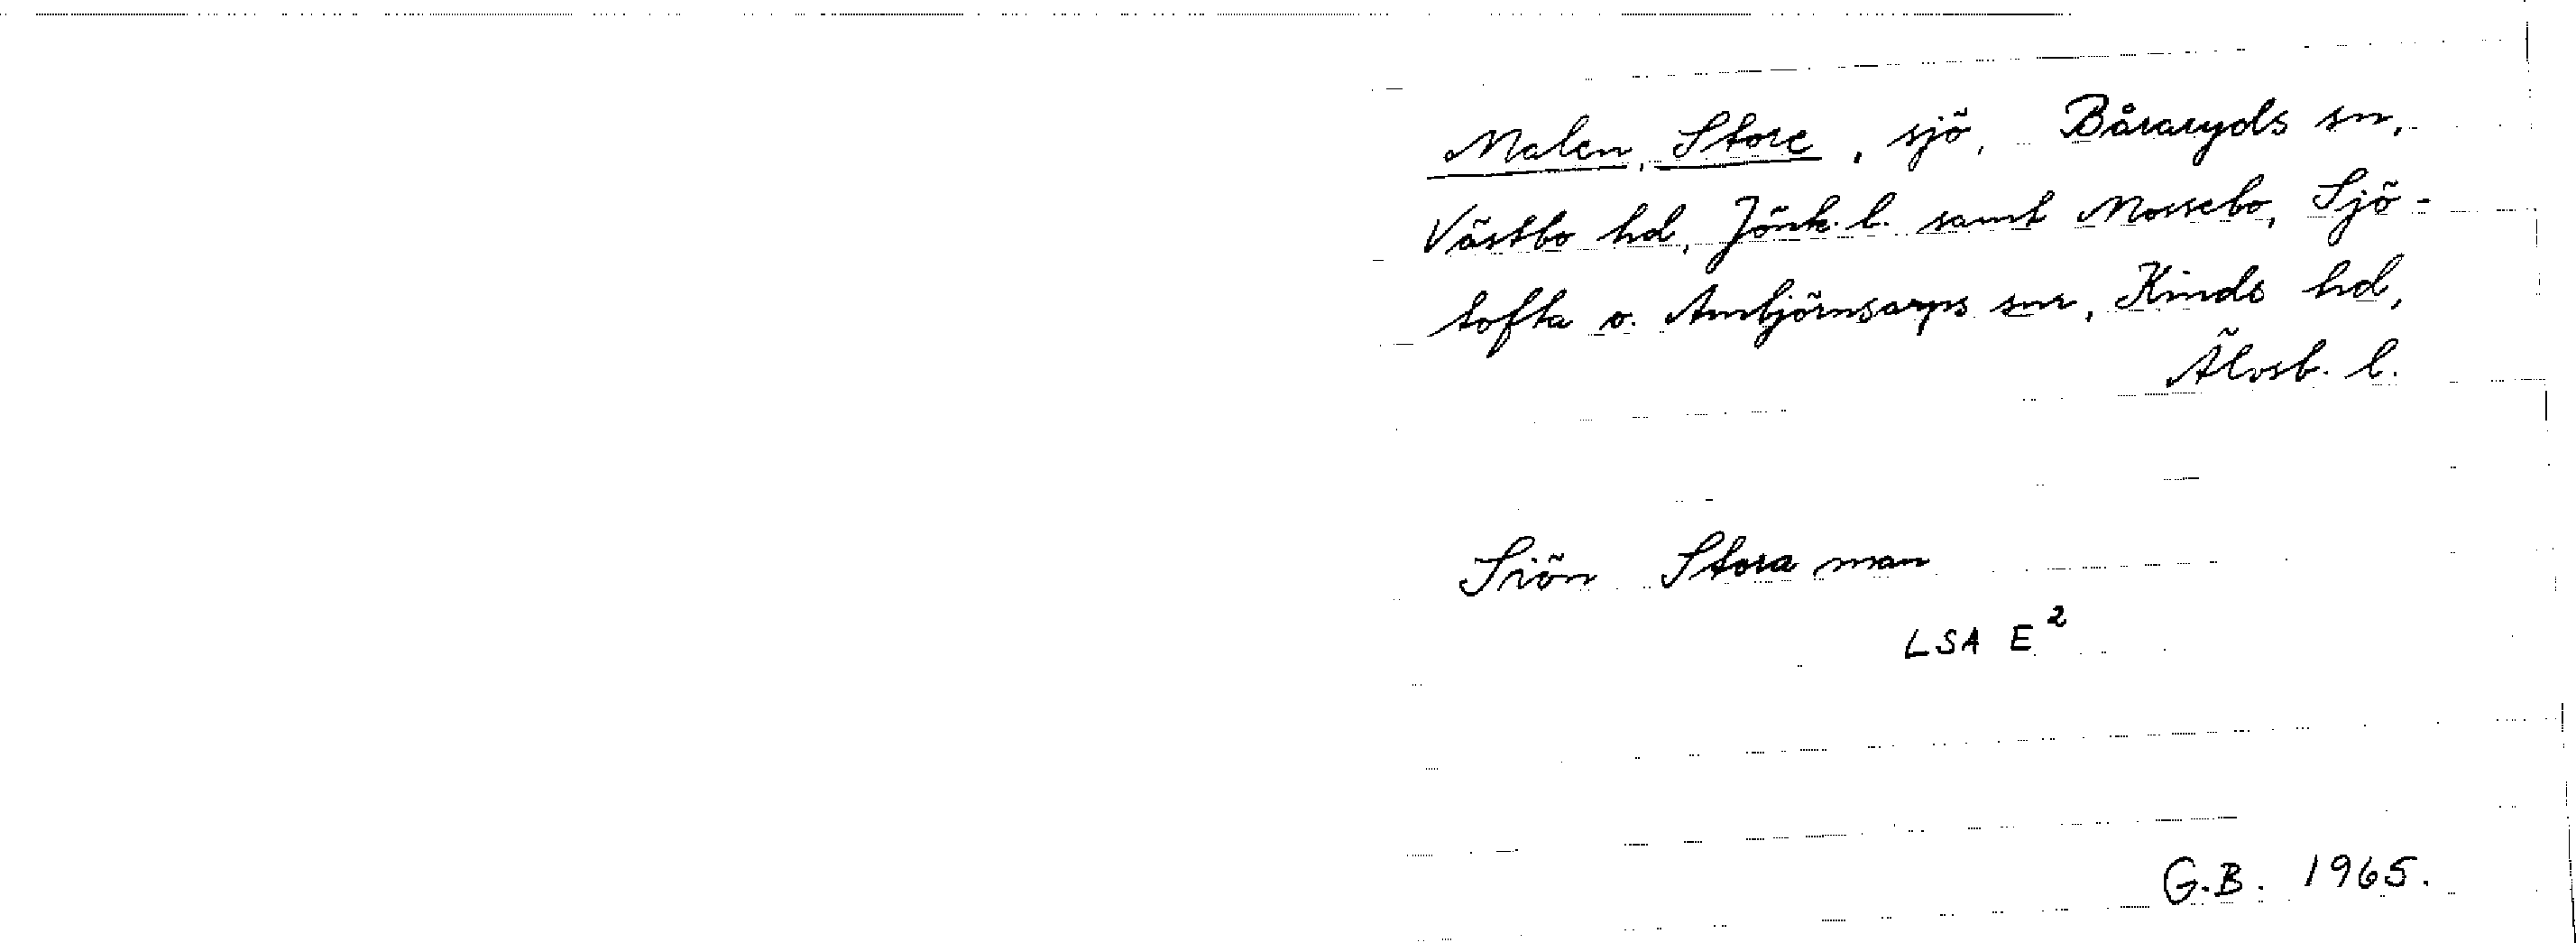 Malen, Store, sjö, Båraryds sn,
Västbo hd, Jönk. l. samt Mossebo, Sjö-
tofta o. Ambjörnsarps snr, Kinds hd,
Älvsb. l.
Siön Stora man
LSA E²
G.B. 1965.